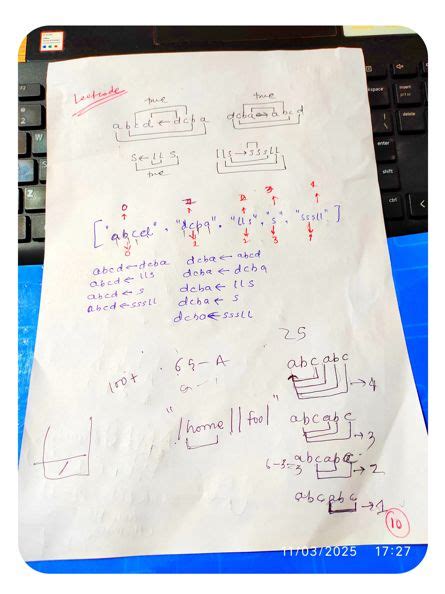 Leetcode
true true
abcd ← dcba dcba ↔ abcd
s ← lls lls → sssll
true
0 1 2 3 4
["abcd", "dcba", "lls", "s", "sssll"]
0 1 2 3 4
abcd ← dcba dcba ← abcd
abcd ← lls dcba ← dcba
abcd ← s dcba ← lls
abcd ← sssll dcba ← s
dcba ← sssll
25
65-A
100+
abcabc → 4
"/home//foo/"
abcabc → 3
6-3=3 abcabc → 2
abcabc → 1
10
11/03/2025 17:27